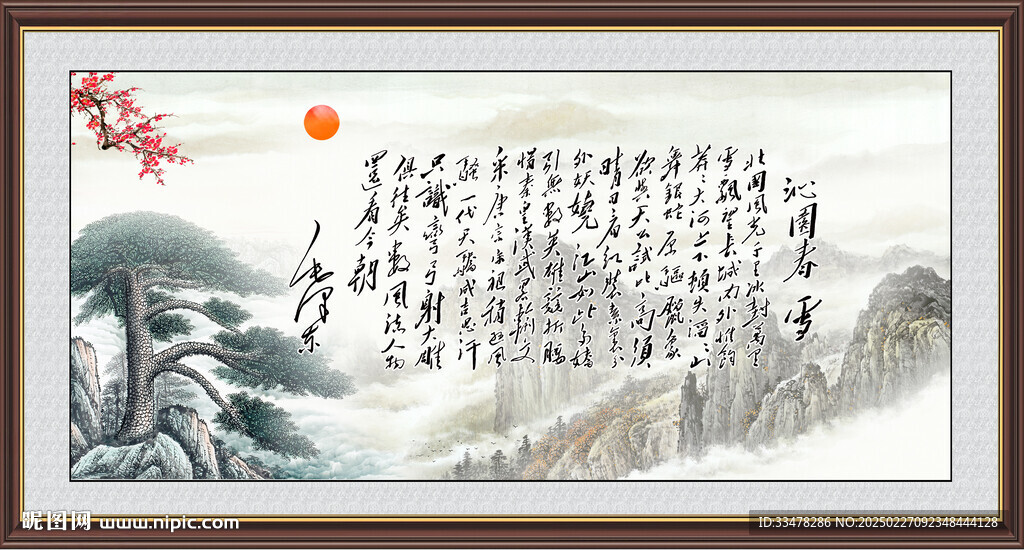 沁園春 雪
北國風光千里冰封萬里
雪飄望長城內外惟餘
莽莽大河上下頓失滔滔山
舞銀蛇原驅臘象
欲與天公試比高須
晴日看紅裝素裹分
外妖嬈江山如此多嬌
引無數英雄競折腰
惜秦皇漢武略輸文
采唐宗宋祖稍遜風
騷一代天驕成吉思汗
只識彎弓射大雕
俱往矣數風流人物
還看今朝
毛澤東
昵图网 www.nipic.com
ID:33478286 NO:20250227092348444128